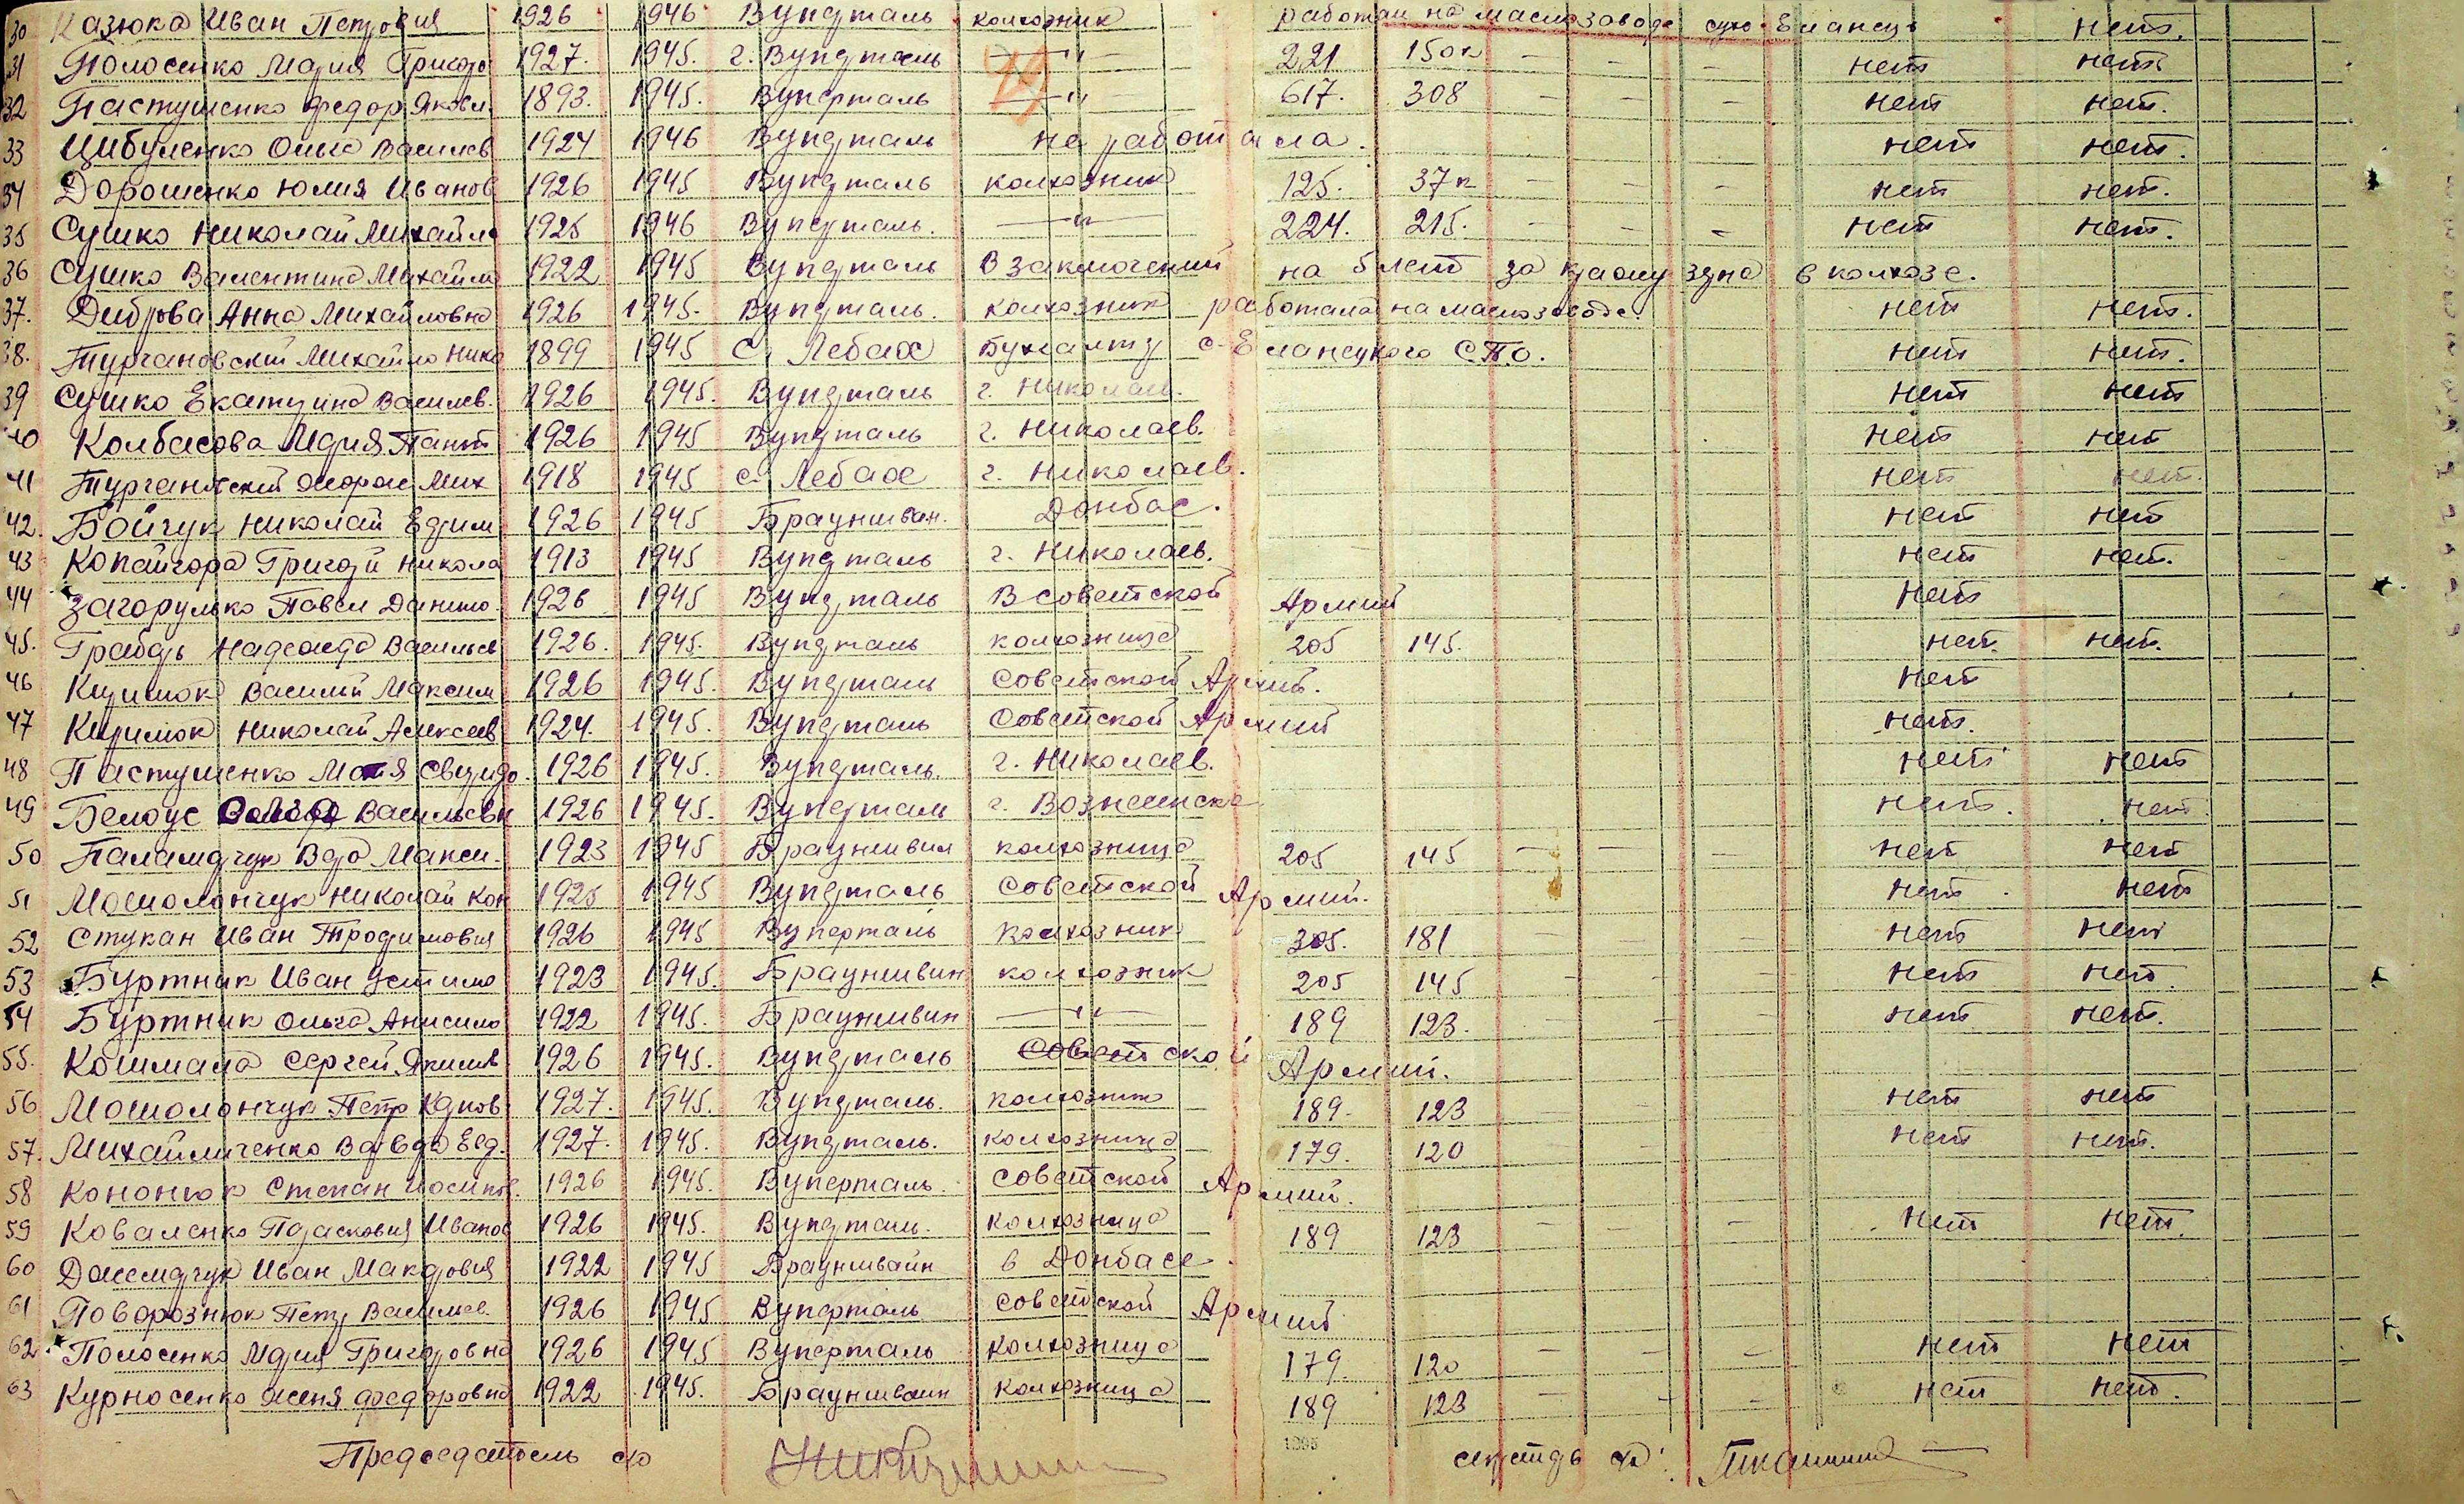 30 Казюка Иван Петрович 1926 1946 Вуперталь колхозник работал на маслозаводе сухо Еланецк нет.
31 Полосенко Мария Григор 1927. 1945. г. Вуперталь —"— 221 150к - - - нет нет
32 Пастушенко Федор Яковл. 1893. 1945. Вуперталь —"— 617. 308 - - - нет нет.
33 Цибуленко Ольга Васильев 1924 1946 Вуперталь не работала. нет нет.
34 Дорошенко Юлия Иванов 1926 1945 Вуперталь колхозник 125. 37к - - - нет нет.
35 Сушко Николай Михайло 1925 1946 Вуперталь. —"— 224. 215. - - - нет нет.
36 Сушко Валентина Михайло 1922 1945 Вуперталь В заключений на 5 лет за кражу зерна в колхозе.
37. Диброва Анна Михайловна 1926 1945. Вуперталь. колхозник работала на маслозаводе. нет нет.
38. Турчановский Михайло Нико 1899 1945 с. Лебах Бухгалтер с-Еланецкого С.П.о. нет нет.
39 Сушко Екатерина Васильев. 1926 1945. Вуперталь г. Николаев. нет нет
40 Колбасова Мария Пант 1926 1945 Вуперталь г. Николаев. нет нет
41 Турчановский Мих 1918 1945 с. Лебах г. Николаев. нет нет.
42. Бойчук Николай Ефрим 1926 1945 Брауншвайн. Донбас. нет нет
43 Копайгора Григорий Никола 1913 1945 Вуперталь г. Николаев. нет нет.
44 Загорулько Павел Данило. 1926 1945 Вуперталь В советской Армий нет
45. Грабарь Надежда Васильев 1926. 1945. Вуперталь колхозница 205 145. нет. нет.
46 Киришок Василий Максим 1926 1945. Вуперталь Советской Армий. нет
47 Киримок Николай Алексеев 1924. 1945. Вуперталь Советской Армий нет.
48 Пастушенко Свиридо. 1926 1945. Вуперталь. г. Николаев. нет нет
49 Белоус Васильевн 1926 1945. Вуперталь г. Вознесенске нет. нет.
50 Паламарчук Вера Макси. 1923 1945 Брауншвин колхозница 205 145 - - - нет нет
51 Мошолончук Николай Кон 1925 1945 Вуперталь Советской Армий. нет. нет
52 Стукан Иван Трофимович 1926 1945 Вуперталь колхозник 305. 181 - - - нет нет
53 Буртник Иван Устимо 1923 1945. Брауншвин колхозник 205 145 - - - нет нет.
54 Буртник Ольга Анисимо 1922 1945. Брауншвин —"— 189 123. - - - нет нет.
55. Кошмала Сергей Якимов 1926 1945. Вуперталь Советской Армий.
56 Мошолончук Петр Карпов. 1927. 1945. Вуперталь. колхозник 189. 123 нет нет
57. Михайличенко Варвара Фед. 1927. 1945. Вуперталь. колхозница 179. 120 нет нет.
58 Кононюк Степан Иосипов. 1926 1945. Вуперталь. Советской Армий.
59 Коваленко Парасковия Иванов 1926 1945. Вуперталь. колхозница 189 123 - - - нет нет.
60 Иван Макарович 1922 1945 Брауншвайн в Донбасе.
61 Поворознюк Петр Васильев. 1926 1945 Вуперталь Советской Армий
62. Полосенко Мария Григоровна 1926 1945 Вуперталь колхозница 179. 120 - - - нет нет
63 Курносенко Женя Федоровна 1922 1945. Брауншваин колхозница 189 123 - - - нет нет.
Председатель с/с секретарь с/с: